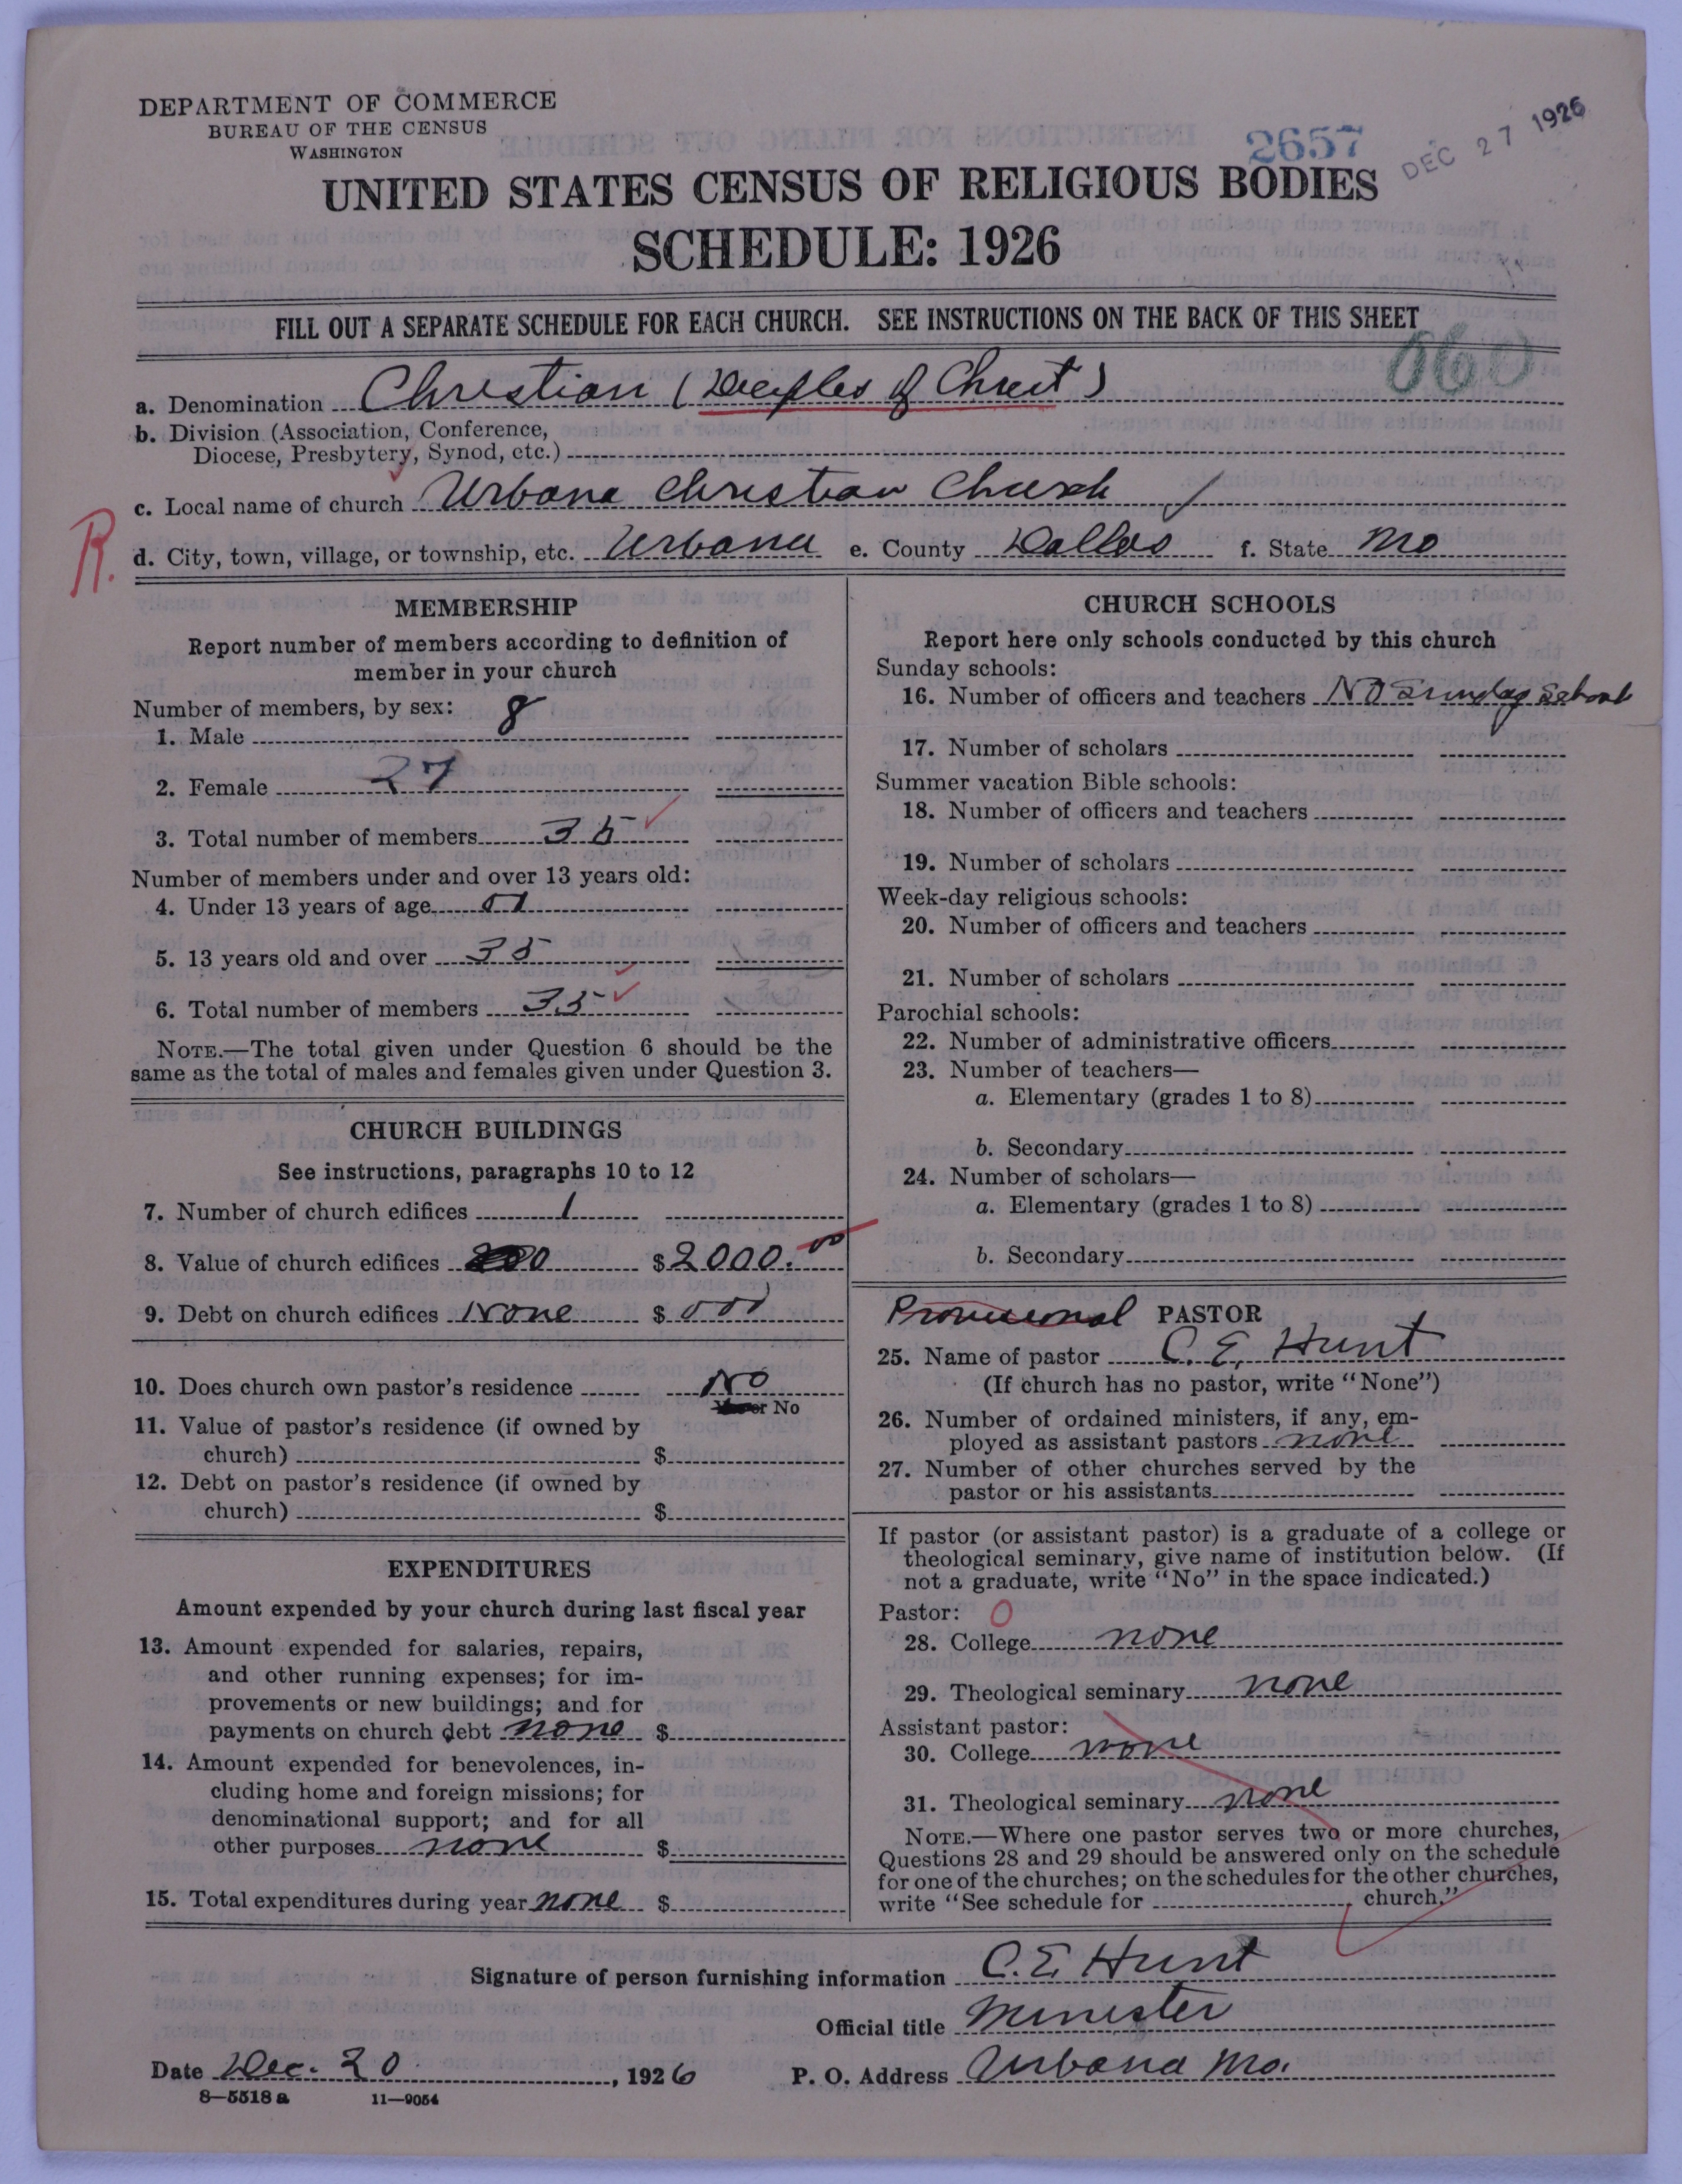 DEPARTMENT OF COMMERCE
BUREAU OF THE CENSUS
WASHINGTON
2657
DEC 27 1926
UNITED STATES CENSUS OF RELIGIOUS BODIES
SCHEDULE: 1926
FILL OUT A SEPARATE SCHEDULE FOR EACH CHURCH. SEE INSTRUCTIONS ON THE BACK OF THIS SHEET
060
a. Denomination Christian (Deciples of Christ)
b. Division (Association, Conference,
Diocese, Presbytery, Synod, etc.)
c. Local name of church Urbana Christian Church
R.
d. City, town, village, or township, etc. Urbana e. County Dallas f. State Mo
MEMBERSHIP
Report number of members according to definition of
member in your church
Number of members, by sex:
1. Male 8
2. Female 27
3. Total number of members 35
Number of members under and over 13 years old:
4. Under 13 years of age
5. 13 years old and over 35
6. Total number of members 35
NOTE.—The total given under Question 6 should be the
same as the total of males and females given under Question 3.
CHURCH BUILDINGS
See instructions, paragraphs 10 to 12
7. Number of church edifices 1
8. Value of church edifices $2000.00
9. Debt on church edifices None $ 000
10. Does church own pastor's residence No
or No
11. Value of pastor's residence (if owned by
church) $
12. Debt on pastor's residence (if owned by
church) $
EXPENDITURES
Amount expended by your church during last fiscal year
13. Amount expended for salaries, repairs,
and other running expenses; for im-
provements or new buildings; and for
payments on church debt none $
14. Amount expended for benevolences, in-
cluding home and foreign missions; for
denominational support; and for all
other purposes none $
15. Total expenditures during year none $
CHURCH SCHOOLS
Report here only schools conducted by this church
Sunday schools:
16. Number of officers and teachers No Sunday School
17. Number of scholars
Summer vacation Bible schools:
18. Number of officers and teachers
19. Number of scholars
Week-day religious schools:
20. Number of officers and teachers
21. Number of scholars
Parochial schools:
22. Number of administrative officers
23. Number of teachers—
a. Elementary (grades 1 to 8)
b. Secondary
24. Number of scholars—
a. Elementary (grades 1 to 8)
b. Secondary
Provisional PASTOR
25. Name of pastor C. E. Hunt
(If church has no pastor, write "None")
26. Number of ordained ministers, if any, em-
ployed as assistant pastors none
27. Number of other churches served by the
pastor or his assistants
If pastor (or assistant pastor) is a graduate of a college or
theological seminary, give name of institution below. (If
not a graduate, write "No" in the space indicated.)
Pastor: O
28. College none
29. Theological seminary none
Assistant pastor:
30. College none
31. Theological seminary none
NOTE.—Where one pastor serves two or more churches,
Questions 28 and 29 should be answered only on the schedule
for one of the churches; on the schedules for the other churches,
write "See schedule for , church."
Signature of person furnishing information C. E. Hunt
Official title Minester
Date Dec. 20, 1926 P. O. Address Urbana Mo.
8—5518 a 11—9054